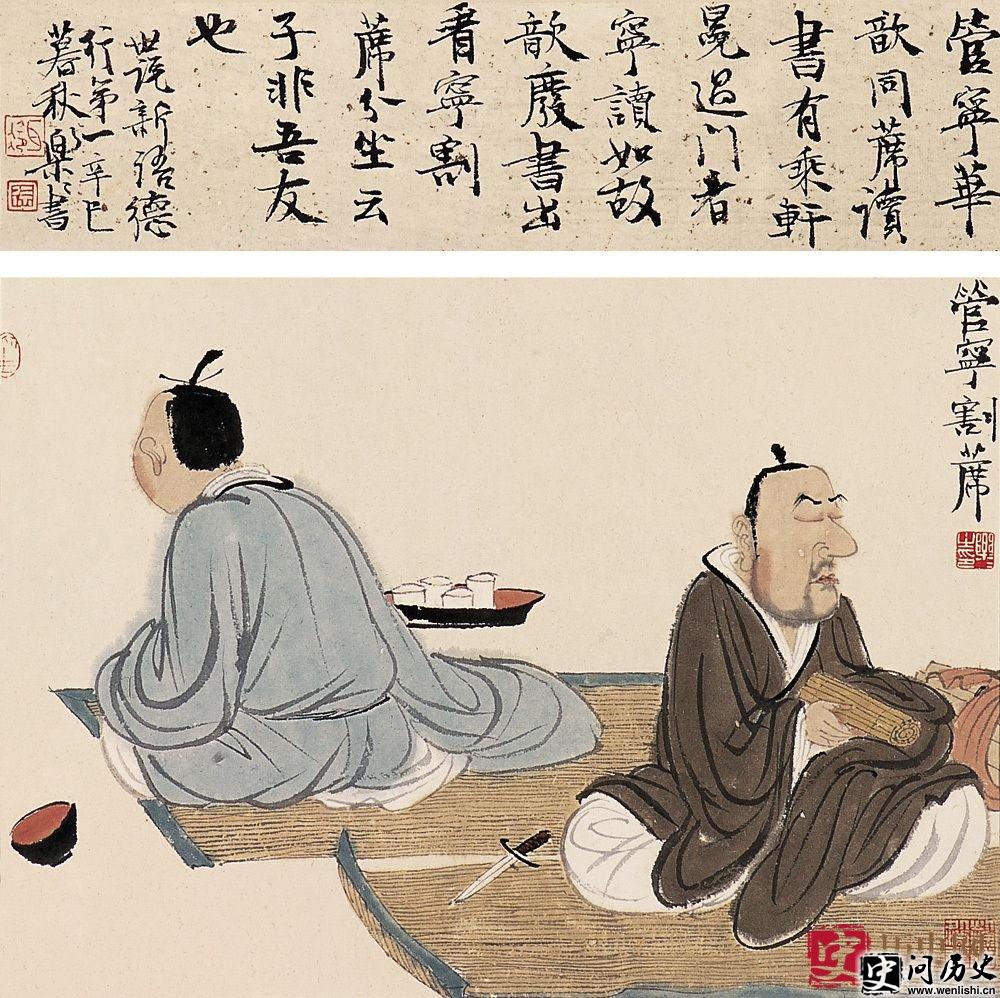 管寧華
歆同蓆讀
書有乘軒
冕過门者
寧讀如故
歆廢書出
看寧割
蓆分坐云
子非吾友
也
世説新語德
行第一辛巳
暮秋樂書
管寧割蓆
史问历史
www.wenlishi.cn